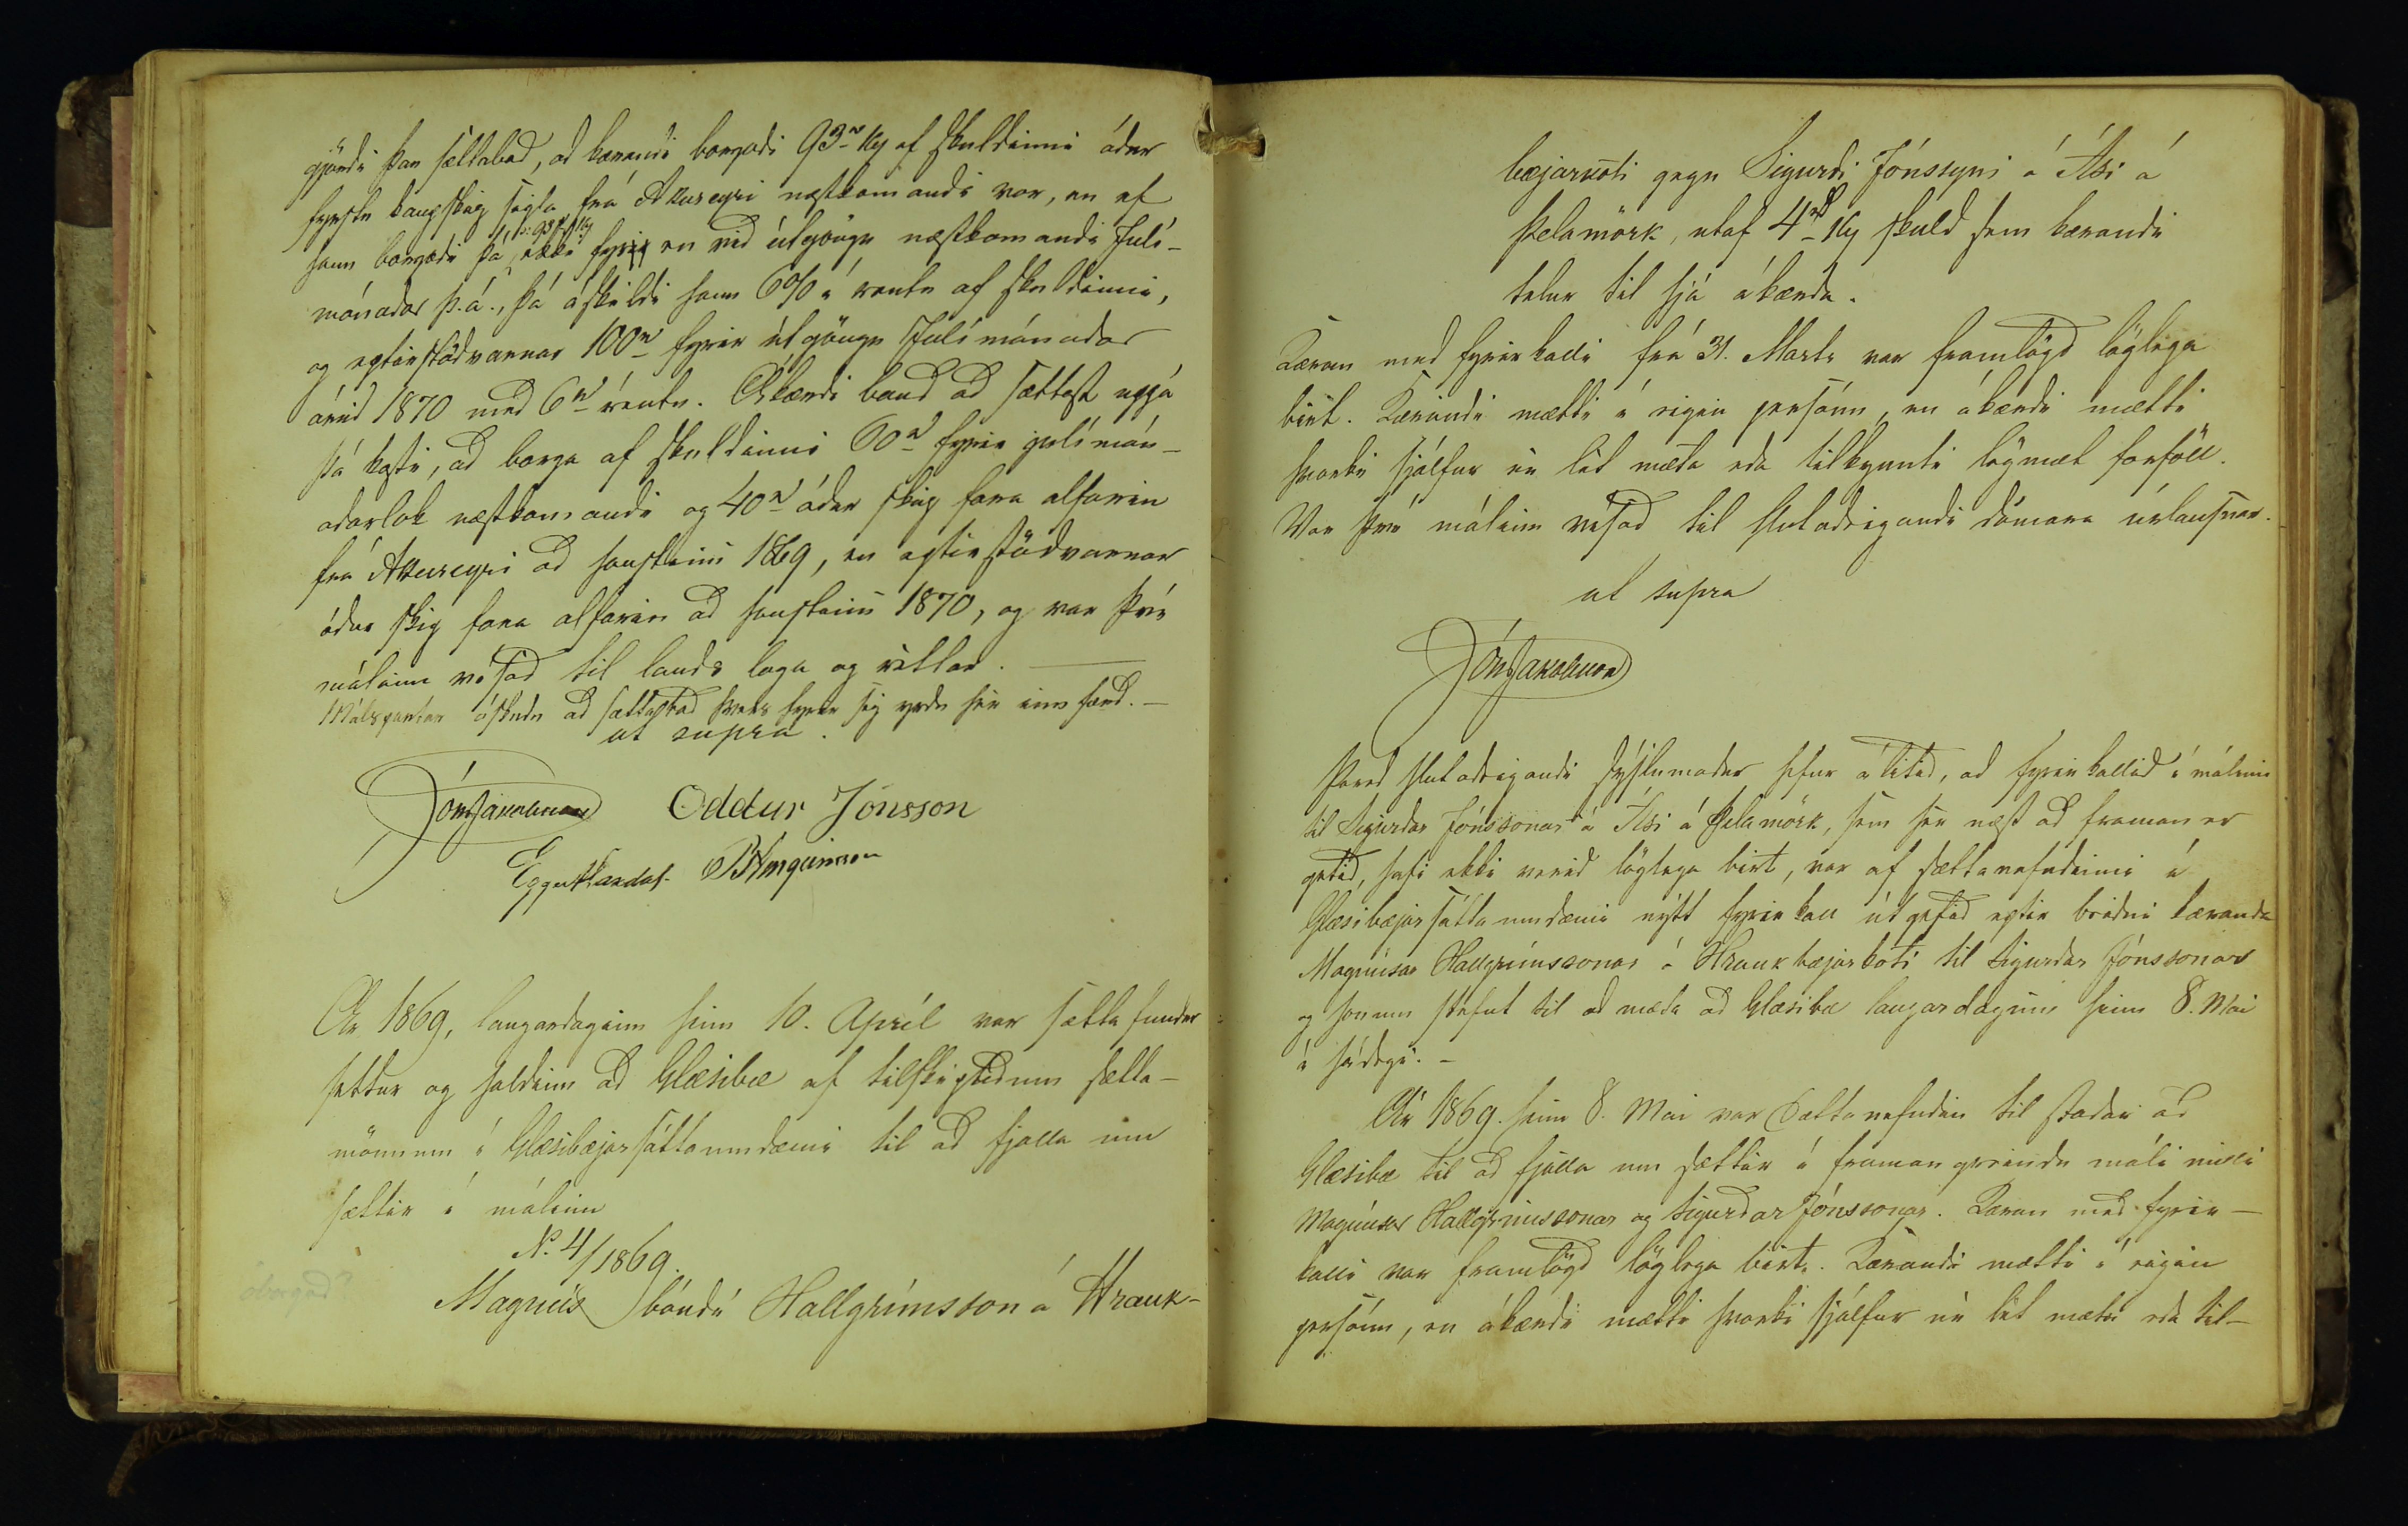 gjörði þau sættabod, ad kærandi borgadi 93rd 14s af skuldinni ádur
fyrstu kaupskip sigla frá Akureyri næstkomandi vor, en ef
hann borgadi þá ekki fyrir en vid útgöngu næstkomandi Julí-
ɔ: 93rd 14s
mánadar þ.á., þá áskildi hann 6% í rentu af skuldinni,
og eptirstödvarnar 100rd fyrir útgöngu Julímánadar
árid 1870 med 6rd rentu. Ákærdi baud ad sættast uppá
þá kosti, ad borga af skuldinni 60rd fyrir julímán-
adarlok næstkomandi og 40rd ádur skip fara alfarin
frá Akureyri ad haustinu 1869, en eptirstödvarnar
ádur skip fara alfarin ad haustinu 1870, og var því
málinu vísad til lands laga og rettar.
Málspartar óskudu ad sættabod hvers fyrir sig yrdu hér innfærd. -
ut supra.
Jón Jakobsson Oddur Jónsson
Eggert
Ár 1869, laugardaginn hinn 10. Apríl var sættafundur
settur og haldinn ad Glæsibæ af tilskipudum sætta-
mönnum í Glæsibæjar sáttaumdæmi til ad fjalla um
sættir í málinu
No. 4/1869.
Magnús bóndi Hallgrímsson á Hrauk-
bæjarkoti gegn Sigurdi Jónssyni á Ási á
Þelamörk, utaf 4rd 14s skuld sem kærandi
telur til hjá ákærda.
Kæran med fyrirkalli frá 31. Marts var framlögd löglega
birt. Kærandi mætti í eigin persónu, en ákærdi mætti
hvorki sjálfur né lét mæta eda tilkynnti lögmæt forföll.
Var því málinu vísad til hlutadeigandi dómara úrlausnar.
ut supra
Jón Jakobsson
Þared hlutadeigandi sýslumadur hefur álitid, ad fyrirkallid í málinu
til Sigurdar Jónssonar á Ási á Þelamörk, sem hér næst ad framan er
getid, hafi ekki verid löglega birt, var af sættanefndinni í
Glæsibæjar sáttaumdæmi nýtt fyrirkall útgefid eptir beidni kæranda
Magnúsar Hallgrímssonar á Hraukbæjarkoti til Sigurdar Jónssonar
og honum stefnt til ad mæta ad Glæsibæ laugardaginn hinn 8. Mai
á hádegi. -
Ár 1869. hinn 8. Mai var Sættanefndin til stadar ad
Glæsibæ til ad fjalla um sættir í framangreindu máli milli
Magnúsar Hallgrímssonar og Sigurdar Jónssonar. Kæran med fyrir-
kalli var framlögd löglega birt. Kærandi mætti í eigin
persónu, en ákærdi mætti hvorki sjálfur né lét mæta eda til-